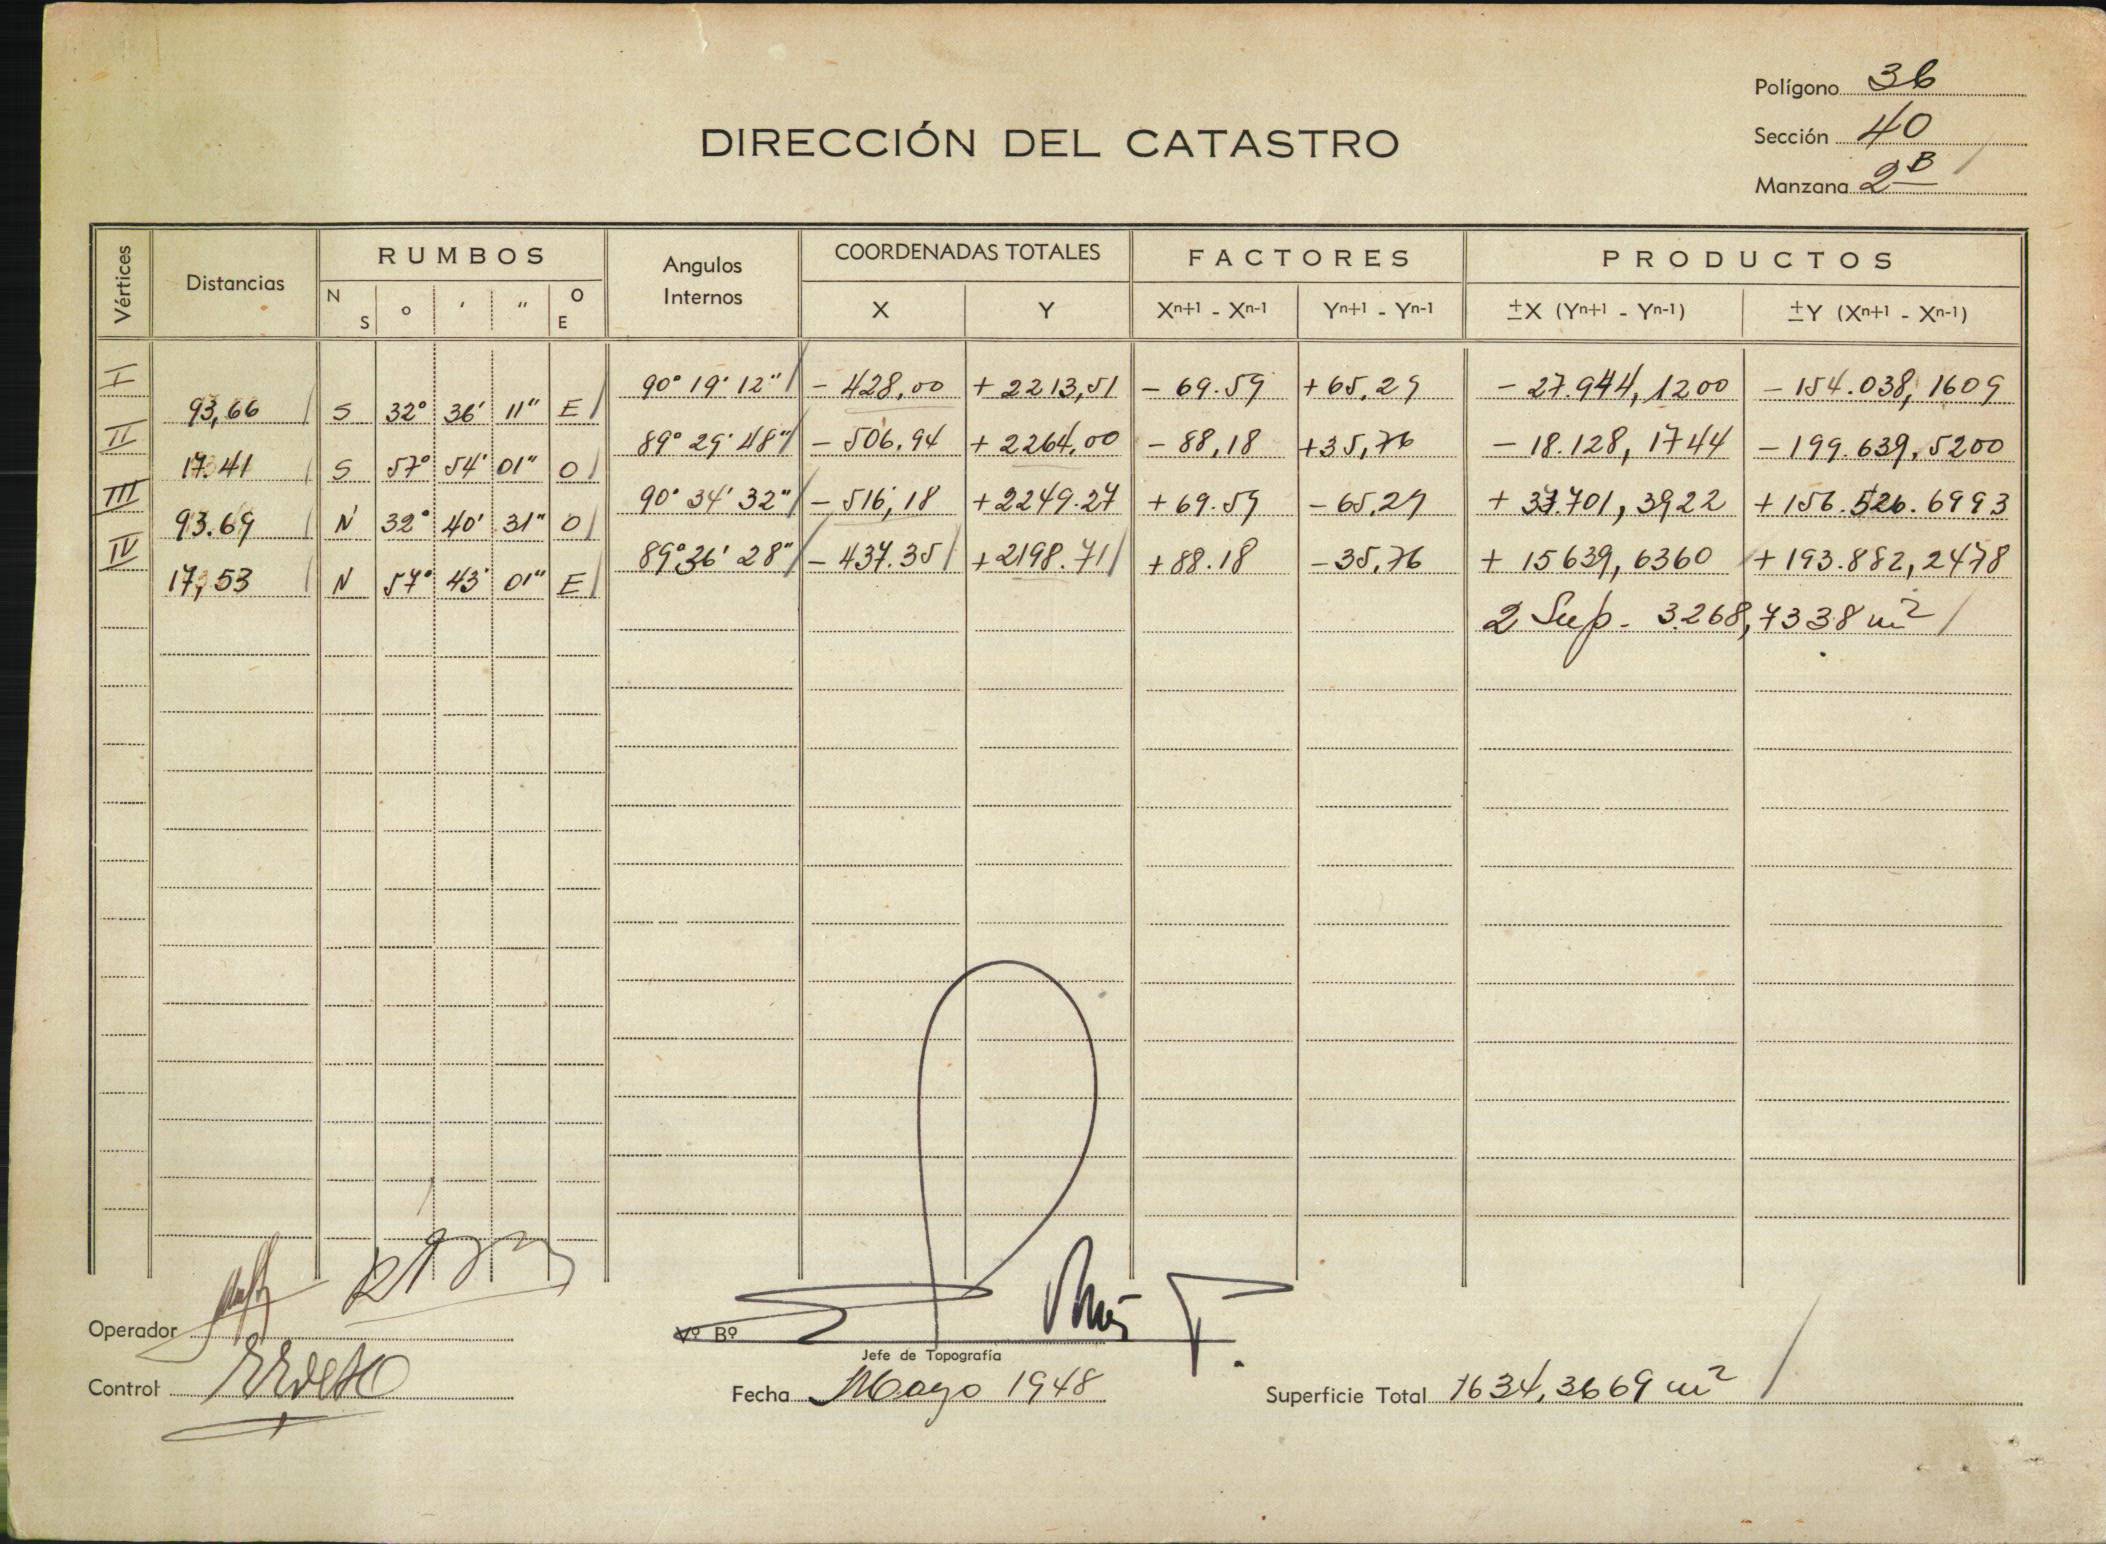 Polígono 36
Sección 40
Manzana 2B
DIRECCIÓN DEL CATASTRO
Vértices Distancias RUMBOS Angulos Internos COORDENADAS TOTALES FACTORES PRODUCTOS
N S ° ' " O E X Y Xn+1 - Xn-1 Yn+1 - Yn-1 ±X (Yn+1 - Yn-1) ±Y (Xn+1 - Xn-1)
I 90° 19' 12" - 428,00 + 2213,51 - 69.59 +65,29 - 27.944,1200 - 154.038,1609
93,66 S 32° 36' 11" E
II 89° 29' 48" - 506.94 + 2264,00 - 88,18 +35,76 - 18.128,1744 - 199.639,5200
17.41 S 57° 54' 01" O
III 90° 34' 32" - 516,18 +2249.27 +69.59 -65,29 + 33.701,3922 +156.526.6993
93.69 N 32° 40' 31" O
IV 89° 36' 28" - 437.35 +2198.71 +88.18 -35,76 + 15639,6360 +193.882,2478
17,53 N 57° 43' 01" E
2 Sup. 3.268,7338 m²
Operador
Vº Bº
Jefe de Topografía
Control
Fecha Mayo 1948
Superficie Total 1634,3669 m²